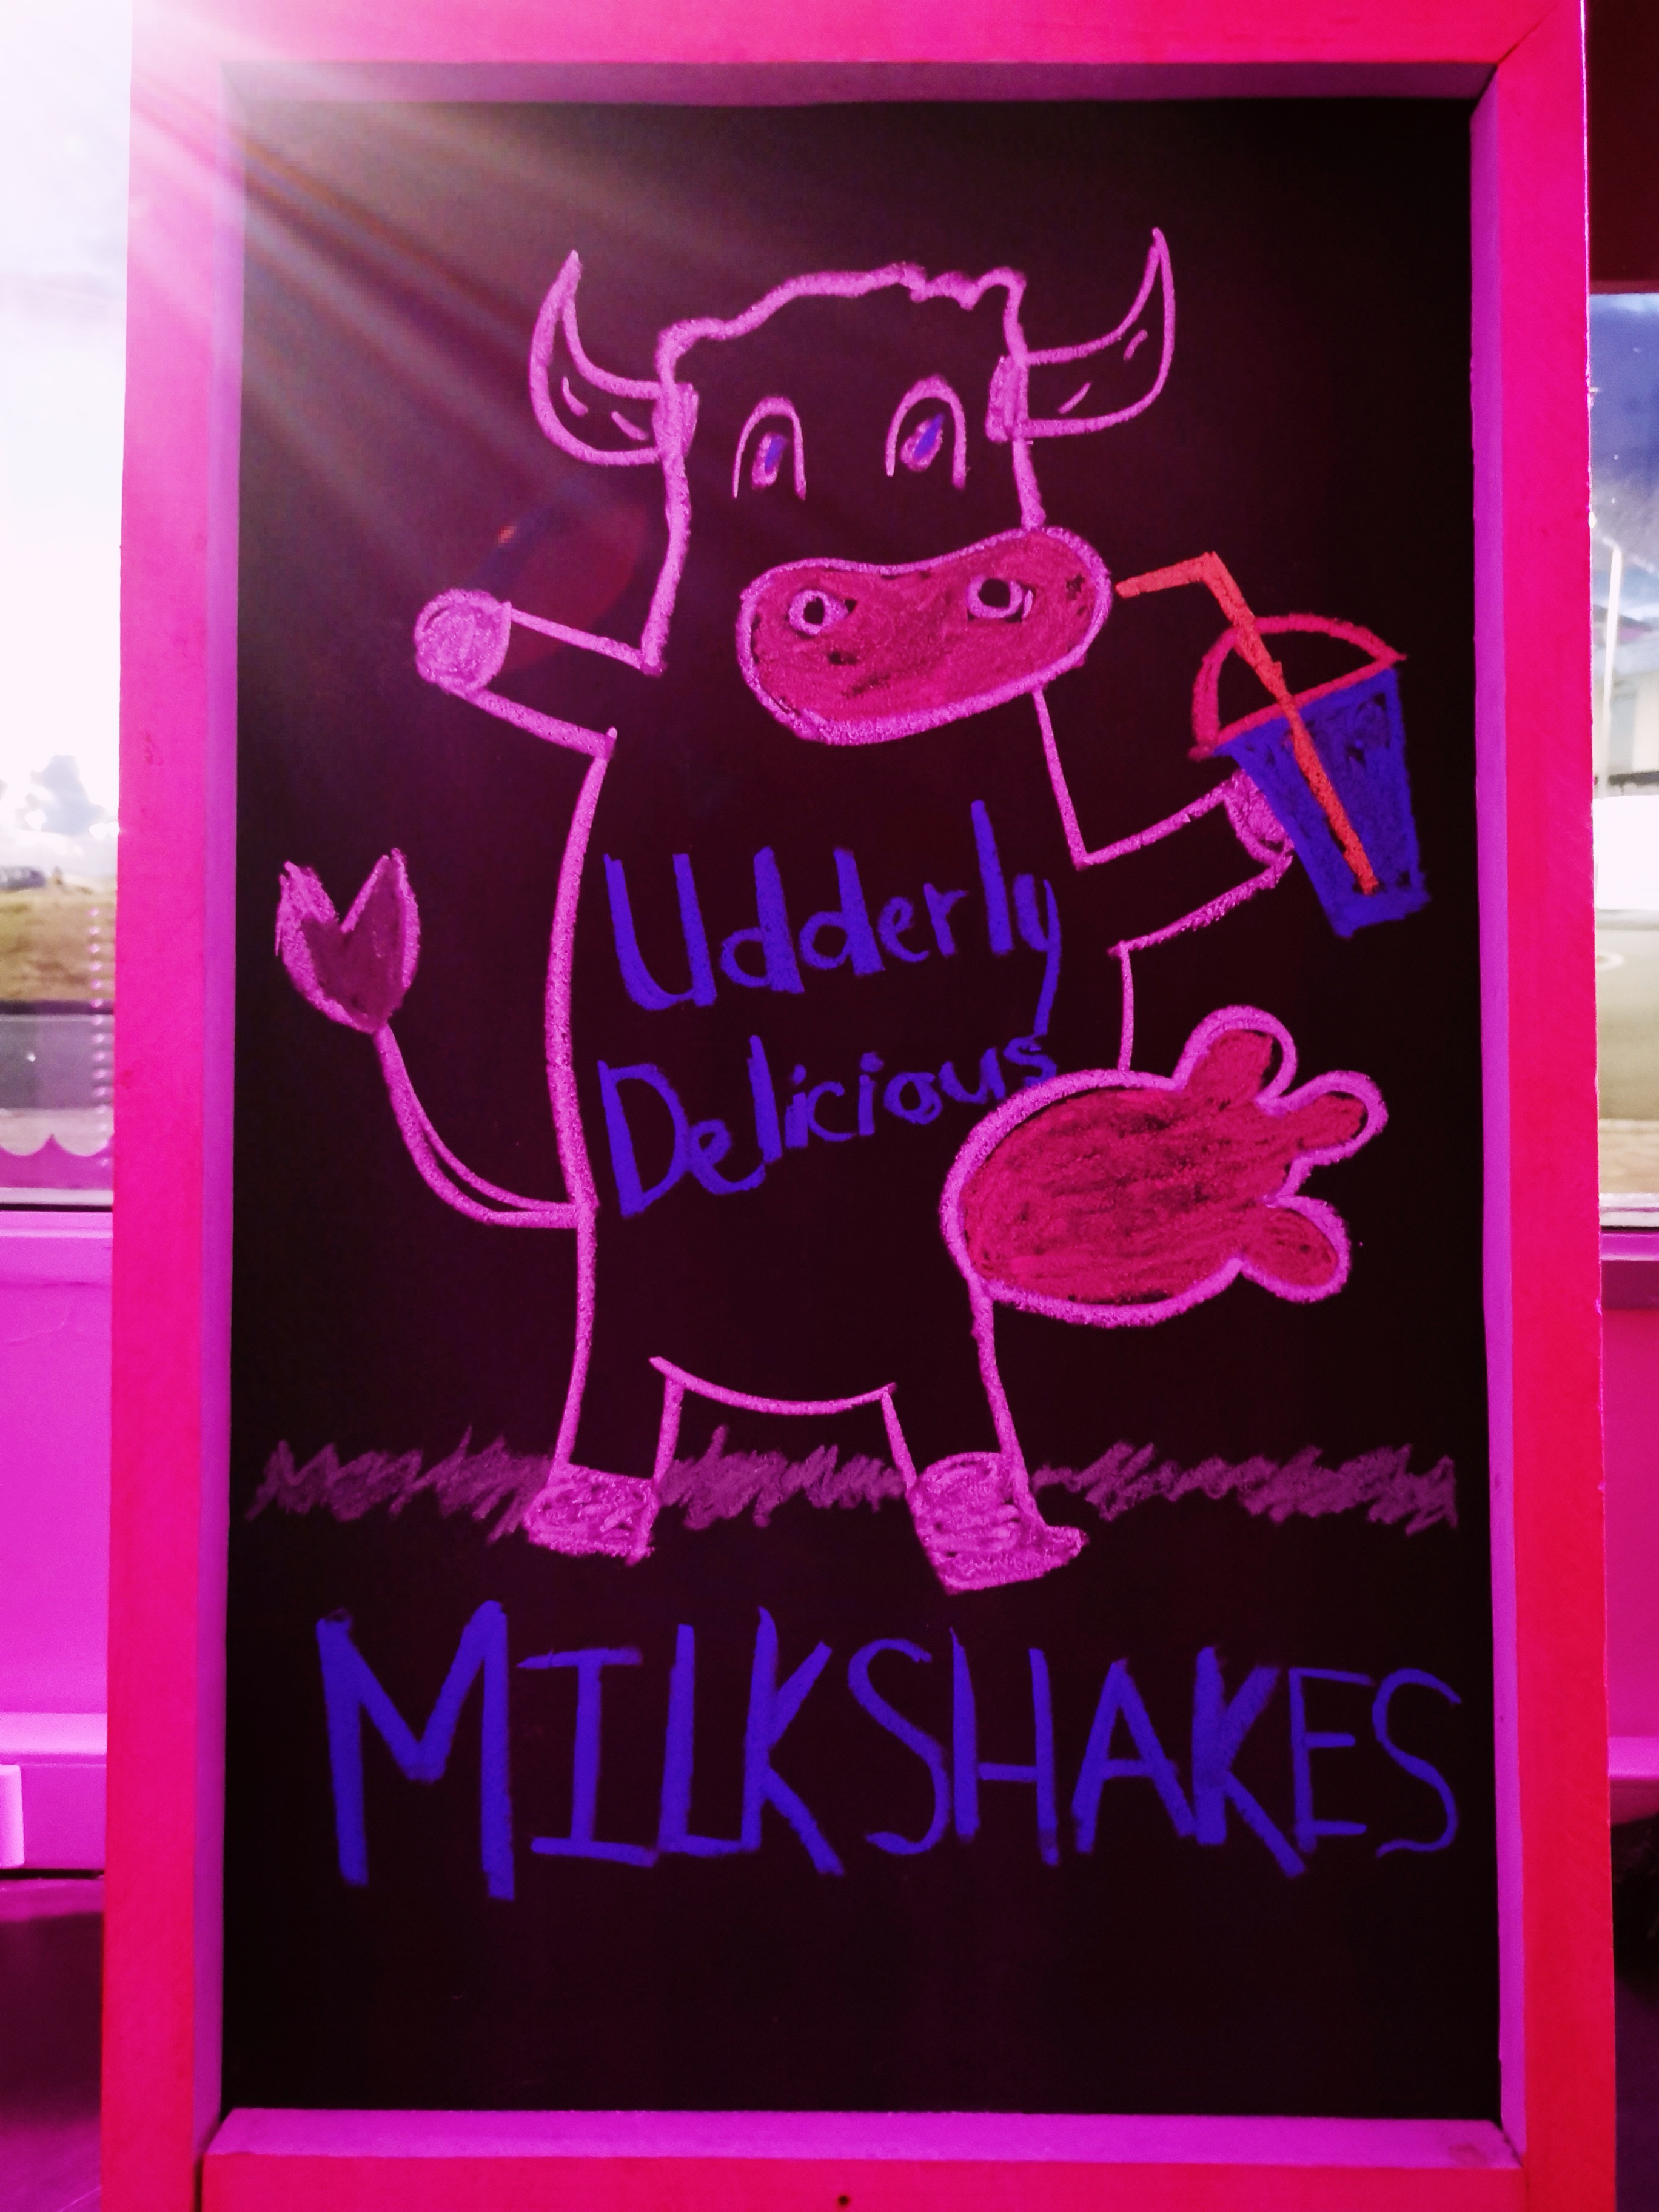 Udderly
Delicious
MILKSHAKES